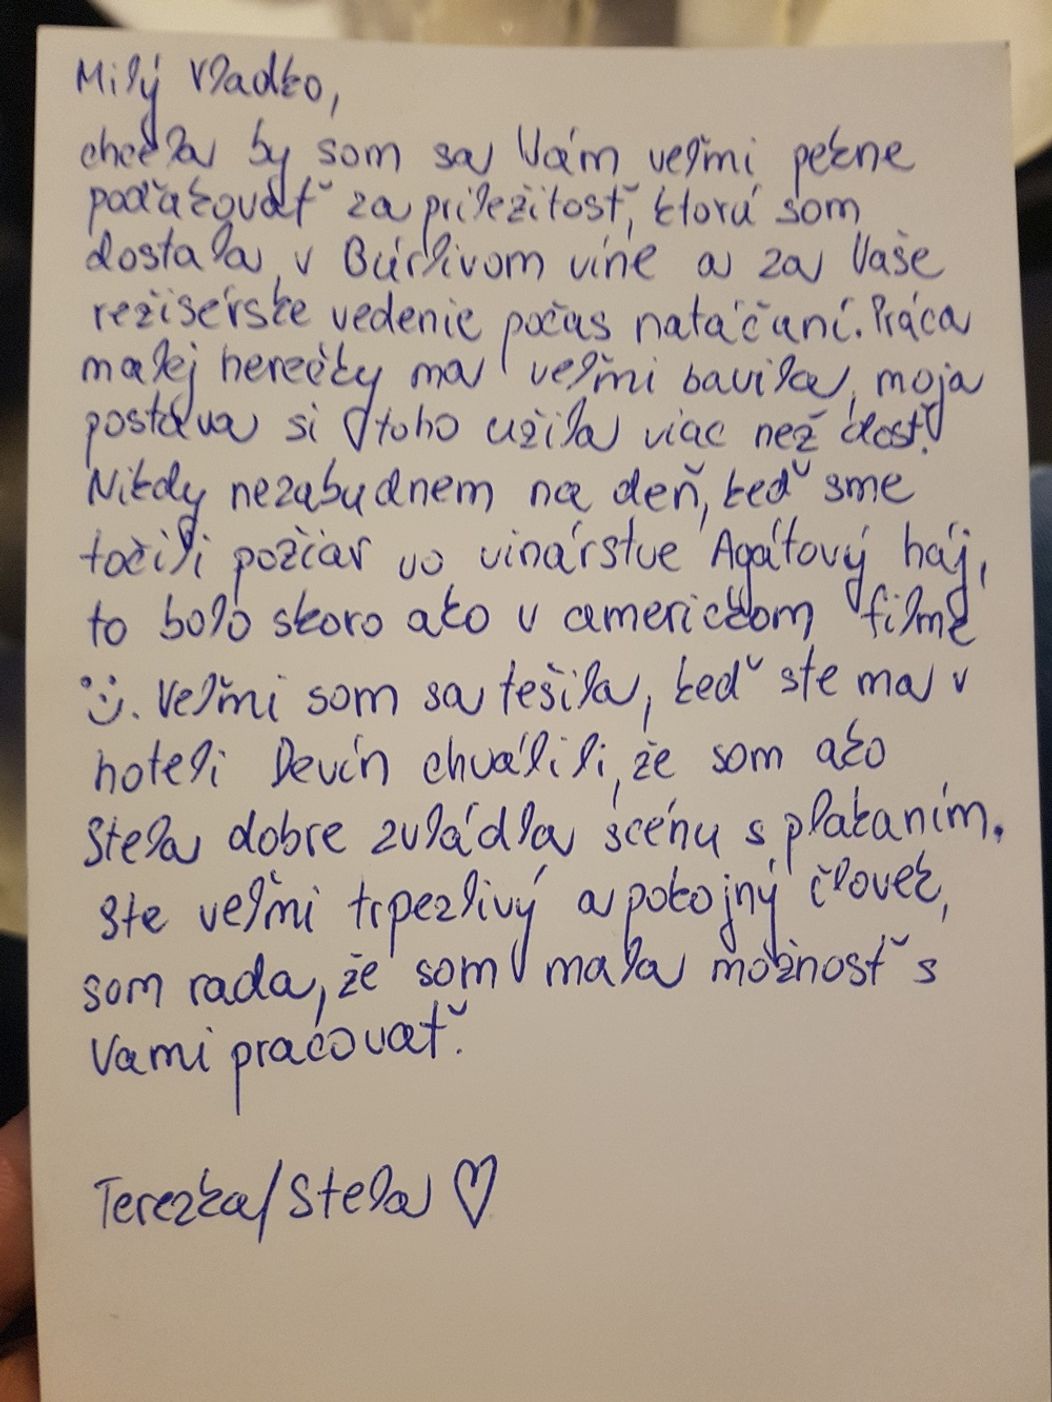 Milý Vladko,
chcela by som sa Vám veľmi pekne
poďakovať za príležitosť, ktorú som
dostala v Búrlivom víne a za Vaše
režisérske vedenie počas natáčaní. Práca
malej herečky ma veľmi bavila, moja
postava si toho užila viac než dosť.
Nikdy nezabudnem na deň, keď sme
točili požiar vo vinárstve Agátový háj,
to bolo skoro ako v americkom filme
:). Veľmi som sa tešila, keď ste ma v
hoteli Devín chválili, že som ako
Stela dobre zvládla scénu s plakaním.
Ste veľmi trpezlivý a pokojný človek,
som rada, že som mala možnosť s
Vami pracovať.
Terezka/Stela ♡